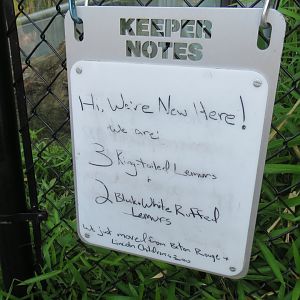 KEEPER
NOTES
Hi, We're New Here!
We are:
3 Ring-tailed Lemurs
+
2 Black+White Ruffed
Lemurs
We just moved from Baton Rouge +
Lincoln Children's Zoo